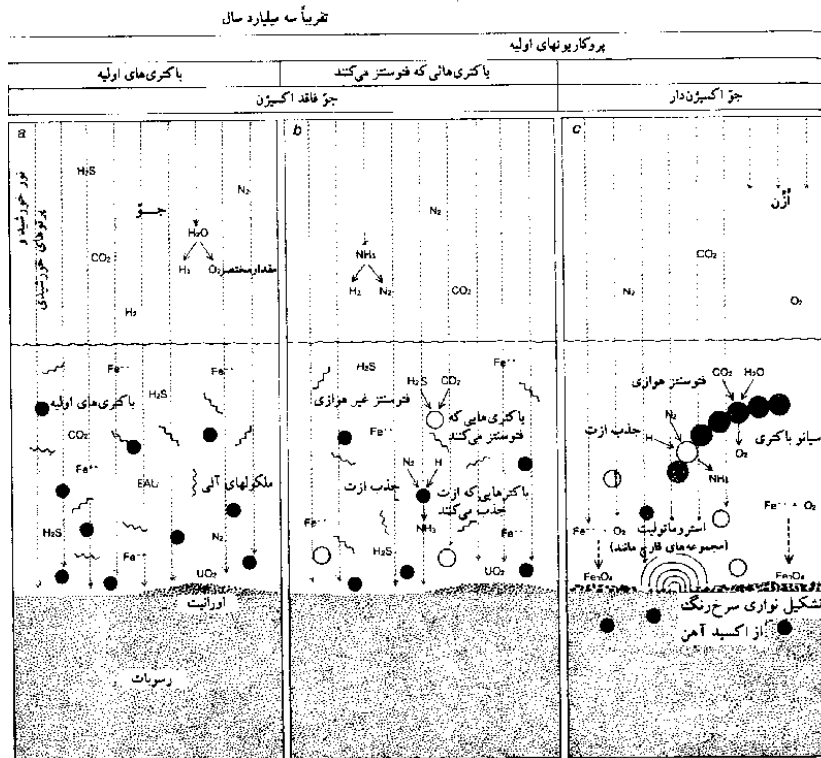 تقریباً سه میلیارد سال
پروکاریونهای اولیه
باکتری‌های اولیه
باکتری‌هائی که فتوسنتز می‌کنند
جوّ فاقد اکسیژن
جوّ اکسیژن‌دار
a
نور خورشید و
پرتوهای خورشیدی
H₂S
N₂
جــوّ
H₂O
CO₂
H₂
O₂
مقدار مختصر
H₂
Fe⁺⁺
Fe⁺⁺
H₂S
باکتری‌های اولیه
CO₂
Fe⁺⁺
EAU
ملکولهای آلی
H₂S
Fe⁺⁺
N₂
UO₂
اورانیت
رسوبات
b
N₂
NH₃
H₂
N₂
CO₂
H₂S
Fe⁺⁺
فتوسنتز غیر هوازی
H₂S
CO₂
Fe⁺⁺
باکتری‌هایی که
فتوسنتز می‌کنند
N₂
H
جذب ازت
باکترهایی که ازت
جذب می‌کنند
Fe⁺⁺
NH₃
Fe⁺⁺
H₂S
UO₂
c
اُزُن
CO₂
N₂
O₂
فتوسنتز هوازی
CO₂
H₂O
N₂
جذب ازت
H
سیانو باکتری
O₂
NH₃
Fe⁺⁺
O₂
استروماتولیت
(مجموعه‌های قارچ مانند)
Fe⁺⁺ + O₂
Fe₃O₄
Fe₃O₄
تشکیل نواری سرخ‌رنگ
از اکسید آهن